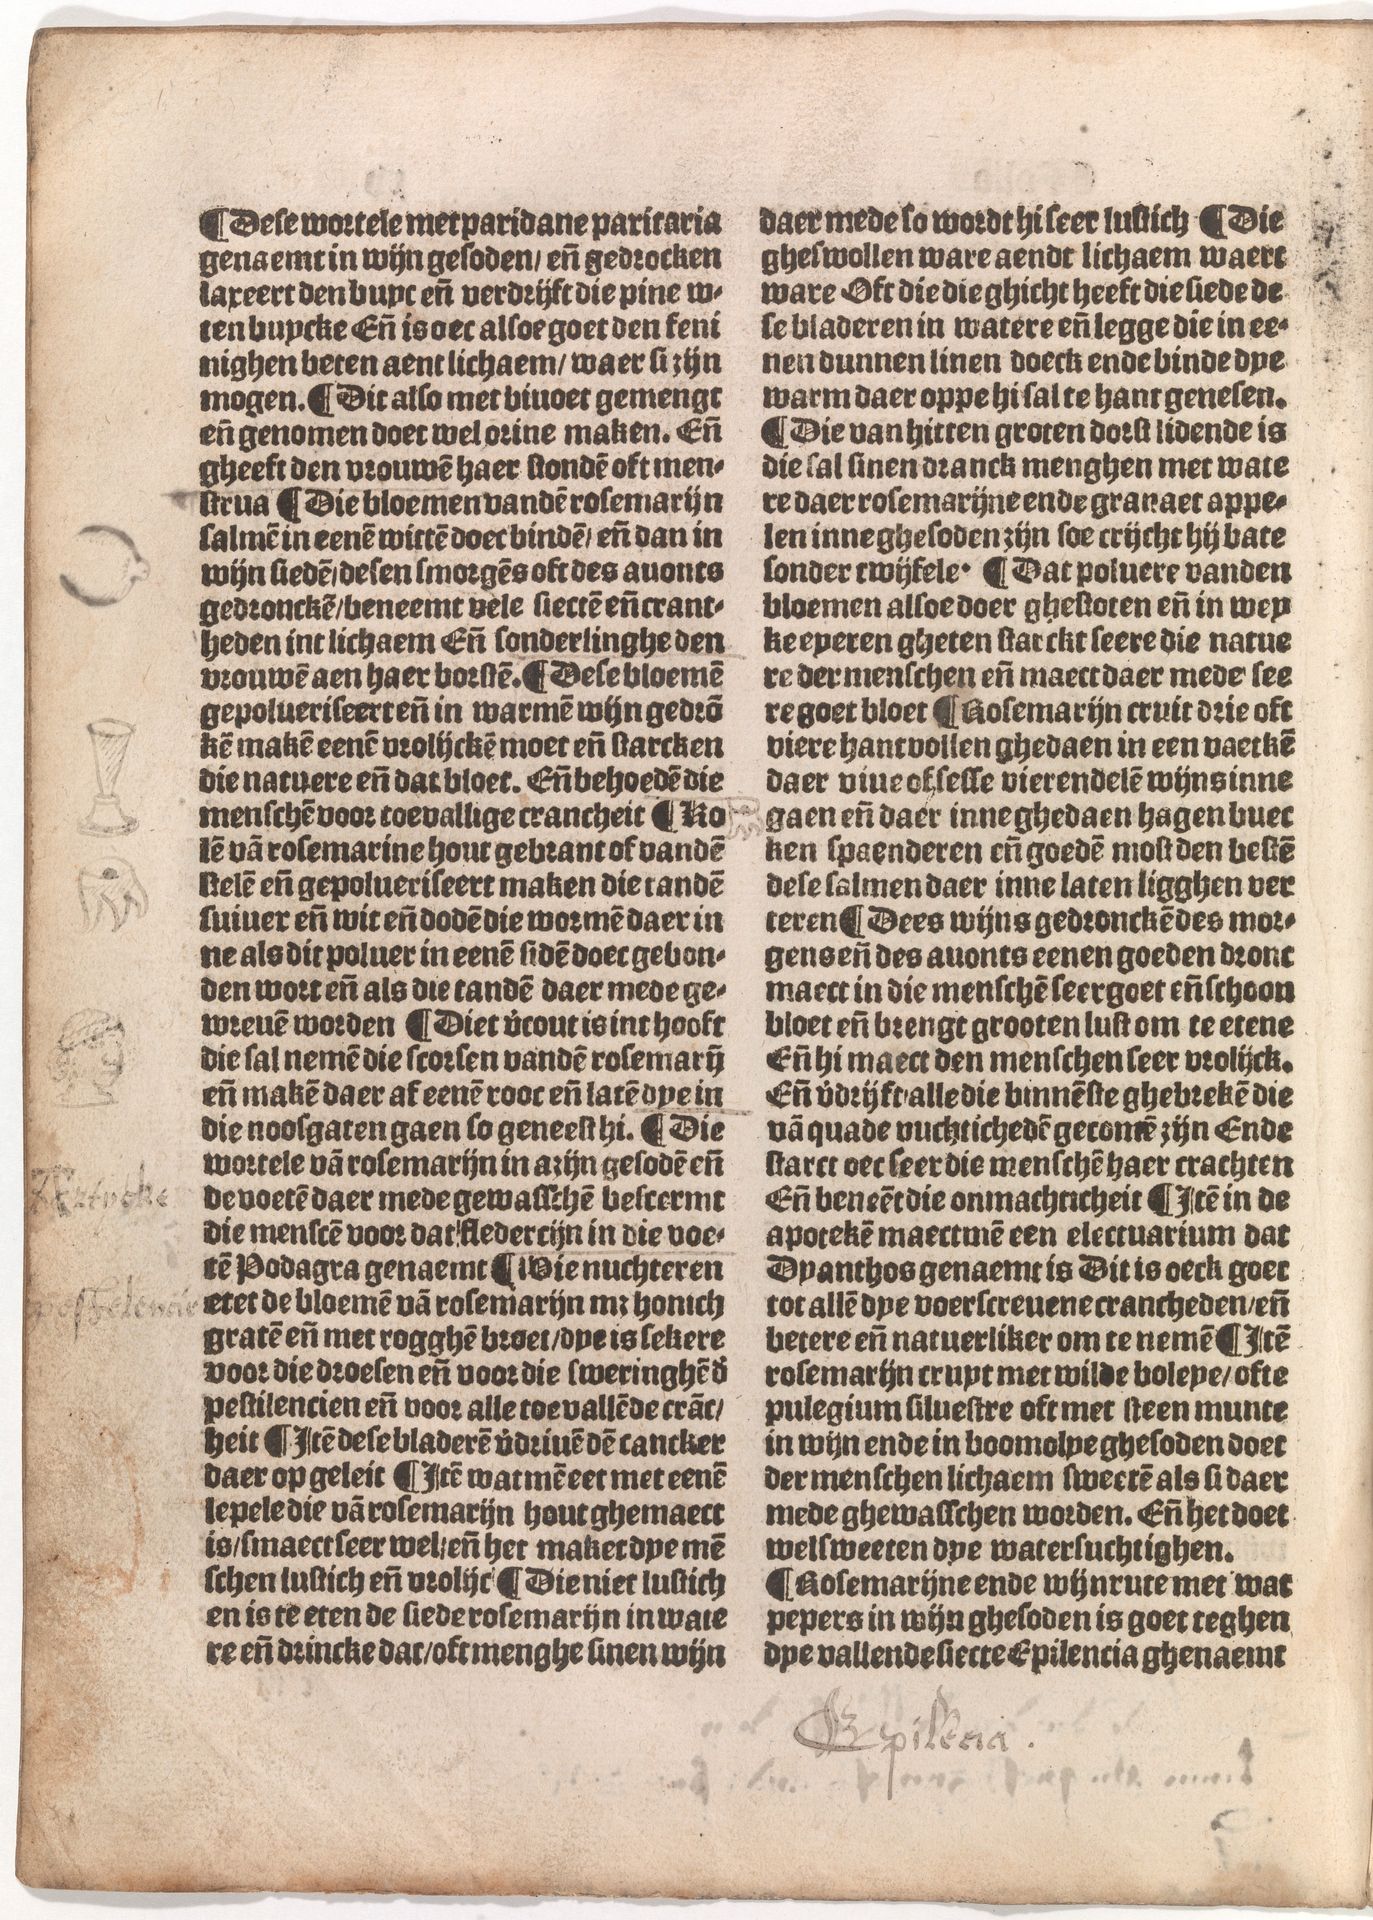 ¶ Dese wortele met paridane paritaria
genaemt in wijn gesoden/ en̄ gedrocken
laxeert den buyc en̄ verdrijft die pine w-
ten buycke En̄ is oec alsoe goet den feni
nighen beten aent lichaem/ waer si zijn
mogen. ¶ Dit also met bivoet gemengt
en̄ genomen doet wel orine maken. En̄
gheeft den vrouwē haer stondē oft men-
strua ¶ Die bloemen vandē rosemarijn
salmē in eenē wittē doec bindē/ en̄ dan in
wijn siedē/ desen smorgēs oft des auonts
gedronckē/ beneemt vele siectē en̄ crant-
heden int lichaem En̄ sonderlinghe den
vrouwē aen haer borstē. ¶ Dese bloemē
gepolueriseert en̄ in warmē wijn gedrō
kē makē eenē vrolijckē moet en̄ starcken
die natuere en̄ dat bloet. En̄ behoedē die
menschē voor toevallige crancheit ¶ Ko
lē vā rosemarine hout gebrant of vandē
stelē en̄ gepolueriseert maken die tandē
suiuer en̄ wit en̄ dodē die wormē daer in
ne als dit poluer in eenē sidē doec gebon-
den wort en̄ als die tandē daer mede ge-
wreuē worden ¶ Diet v̄cout is int hooft
die sal nemē die scorsen vandē rosemarij̄
en̄ makē daer af eenē rooc en̄ latē dye in
die noosgaten gaen so geneest hi. ¶ Die
wortele vā rosemarijn in azijn gesodē en̄
de voetē daer mede gewasschē bescermt
die menscē voor dat fledercijn in die voe-
tē Podagra genaemt ¶ Die nuchteren
etet de bloemē vā rosemarijn mz honich
gratē en̄ met rogghē broet/ dye is sekere
voor die droesen en̄ voor die sweringhē d̄
pestilencien en̄ voor alle toevallēde crāc/
heit ¶ Itē dese bladerē v̄driuē dē cancker
daer op geleit ¶ Itē wat mē eet met eenē
lepele die vā rosemarijn hout ghemaect
is/ smaect seer wel/ en̄ het maket dye mē
schen lustich en̄ vrolijc ¶ Die niet lustich
en is te eten de siede rosemarijn in wate
re en̄ drincke dat/ oft menghe sinen wijn
pestelencie
daer mede so wordt hi seer lustich ¶ Die
gheswollen ware aendt lichaem waert
ware Oft die die ghicht heeft die siede de
se bladeren in watere en̄ legge die in ee-
nen dunnen linen doeck ende binde dye
warm daer oppe hi sal te hant genesen.
¶ Die van hitten groten dorst lidende is
die sal sinen dranck menghen met wate
re daer rosemarijne ende granaet appe-
len inne ghesoden zijn soe crijcht hij bate
sonder twijfele. ¶ Dat poluere vanden
bloemen alsoe doer ghestoten en̄ in wey
ke eyeren gheten starckt seere die natue
re der menschen en̄ maect daer mede see
re goet bloet ¶ Rosemarijn cruit drie oft
viere hant vollen ghedaen in een vaetkē
daer viue of sesse vierendelē wijns inne
gaen en̄ daer inne ghedaen hagen buec
ken spaenderen en̄ goedē most den bestē
dese salmen daer inne laten ligghen ver
teren ¶ Dees wijns gedronckē des mor-
gens en̄ des auonts eenen goeden dronc
maect in die menschē seer goet en̄ schoon
bloet en̄ brengt grooten lust om te etene
En̄ hi maect den menschen seer vrolijck.
En̄ v̄drijft alle die binnēste ghebrekē die
vā quade vuchtichedē gecomē zijn Ende
starct oec seer die menschē haer crachten
En̄ beneēt die onmachticheit ¶ Itē in de
apotekē maectmē een electuarium dat
Dyanthos genaemt is Dit is oeck goet
tot allē dye voerscreuene crancheden/ en̄
betere en̄ natuerliker om te nemē ¶ Itē
rosemarijn cruyt met wilde boleye/ ofte
pulegium siluestre oft met steen munte
in wijn ende in boomolye ghesoden doet
der menschen lichaem sweetē als si daer
mede ghewasschen worden. En̄ het doet
wel sweeten dye watersuchtighen.
¶ Rosemarijne ende wijnrute met wat
pepers in wijn ghesoden is goet teghen
dye vallende siecte Epilencia ghenaemt
Epilecia.